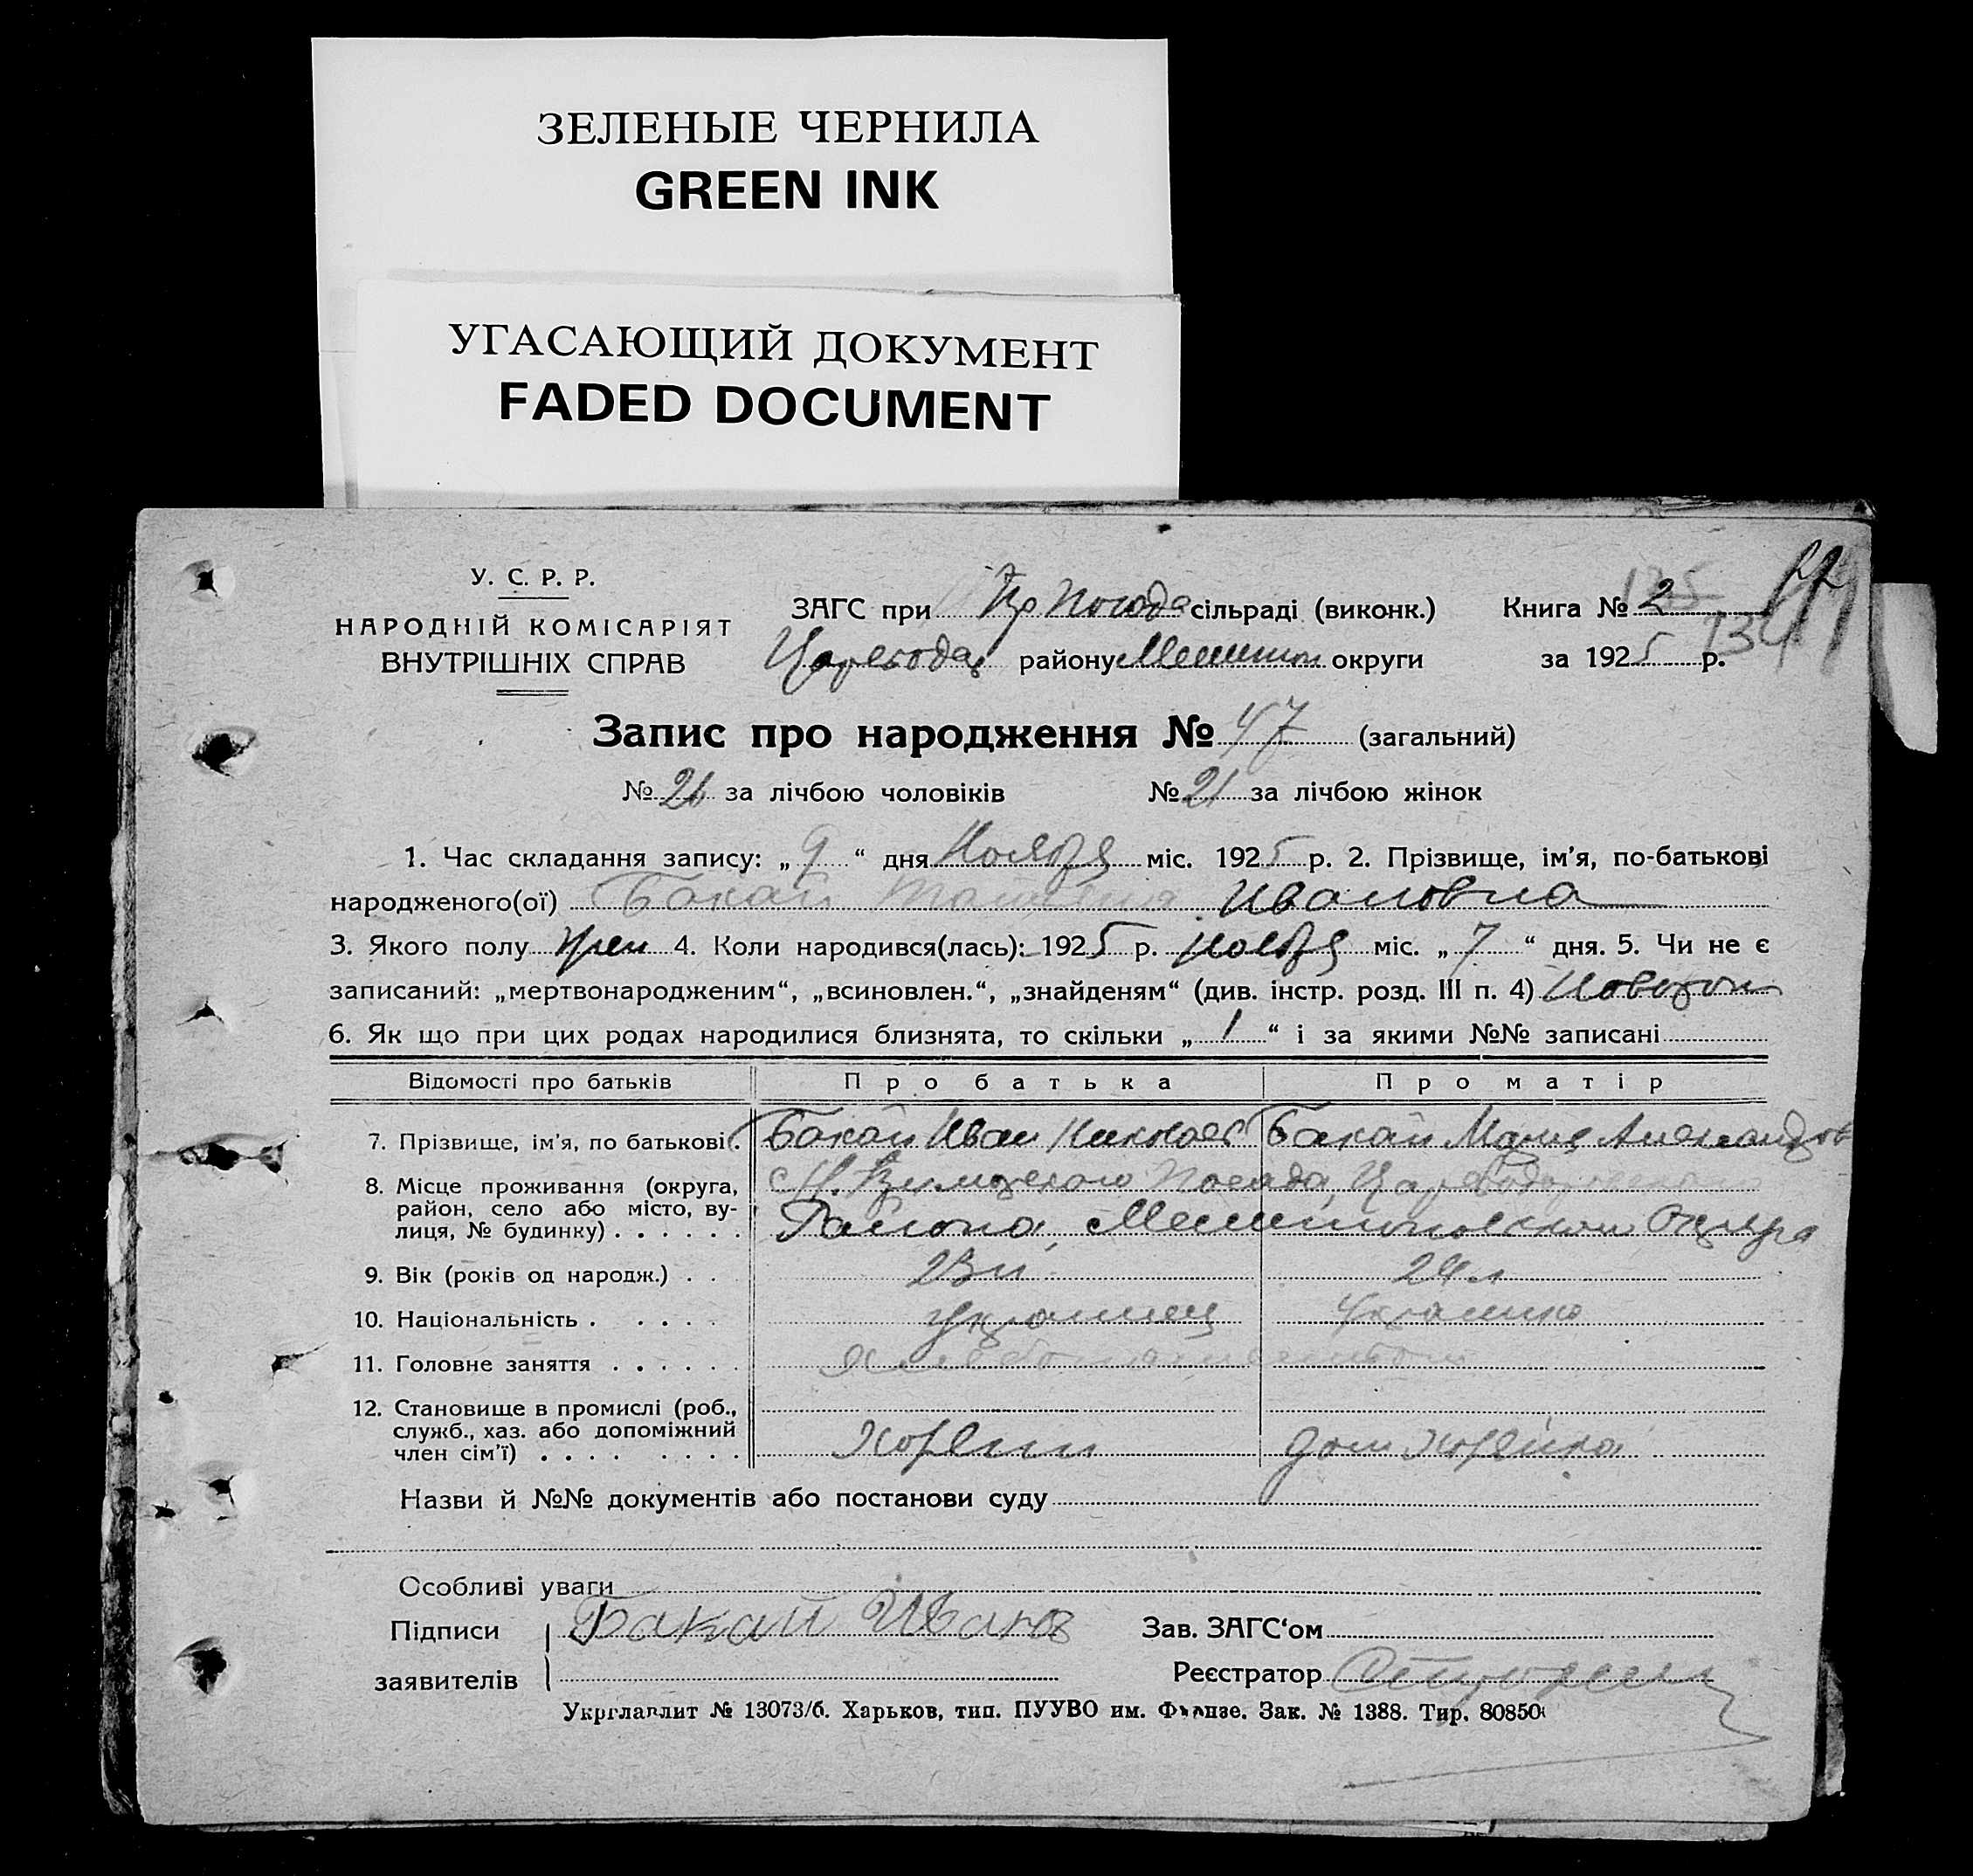 ЗЕЛЕНЫЕ ЧЕРНИЛА
GREEN INK
УГАСАЮЩИЙ ДОКУМЕНТ
FADED DOCUMENT
У. С. Р. Р.
НАРОДНІЙ КОМІСАРІЯТ
ВНУТРІШНІХ СПРАВ
ЗАГС при сільраді (виконк.)
району округи
Книга № 2
за 1925 р.
134
Запис про народження № 47 (загальний)
№ 26 за лічбою чоловіків № 21 за лічбою жінок
1. Час складання запису: „ 9 “ дня Ноября міс. 1925 р. 2. Прізвище, ім’я, по-батькові
народженого(ої) Бакай Татьяна Ивановна
3. Якого полу жен 4. Коли народився(лась): 1925 р. ноября міс. „ 7 “ дня. 5. Чи не є
записаний: „мертвонародженим“, „всиновлен.“, „знайденям“ (див. інстр. розд. III п. 4)
6. Як що при цих родах народилися близнята, то скільки „ 1 “ і за якими №№ записані
Відомості про батьків Про батька Про матір
7. Прізвище, ім’я, по батькові. Бакай Иван Николаев Бакай Мария Александров
8. Місце проживання (округа, Посада,
район, село або місто, ву-
лиця, № будинку) . . . . . . Района,
9. Вік (років од народж.) . . 23 л 24 л
10. Національність . . . . . украинец украинка
11. Головне заняття . . . . . .
12. Становище в промислі (роб.,
служб., хаз. або допоміжний
член сім’ї) . . . . . . . . хозяин дом хозяйка
Назви й №№ документів або постанови суду
Особливі уваги
Підписи Бакай Иван Зав. ЗАГС‘ом
заявителів Реєстратор
Укрглавлит № 13073/б. Харьков, тип. ПУУВО им. Фрунзе. Зак. № 1388. Тир. 80850